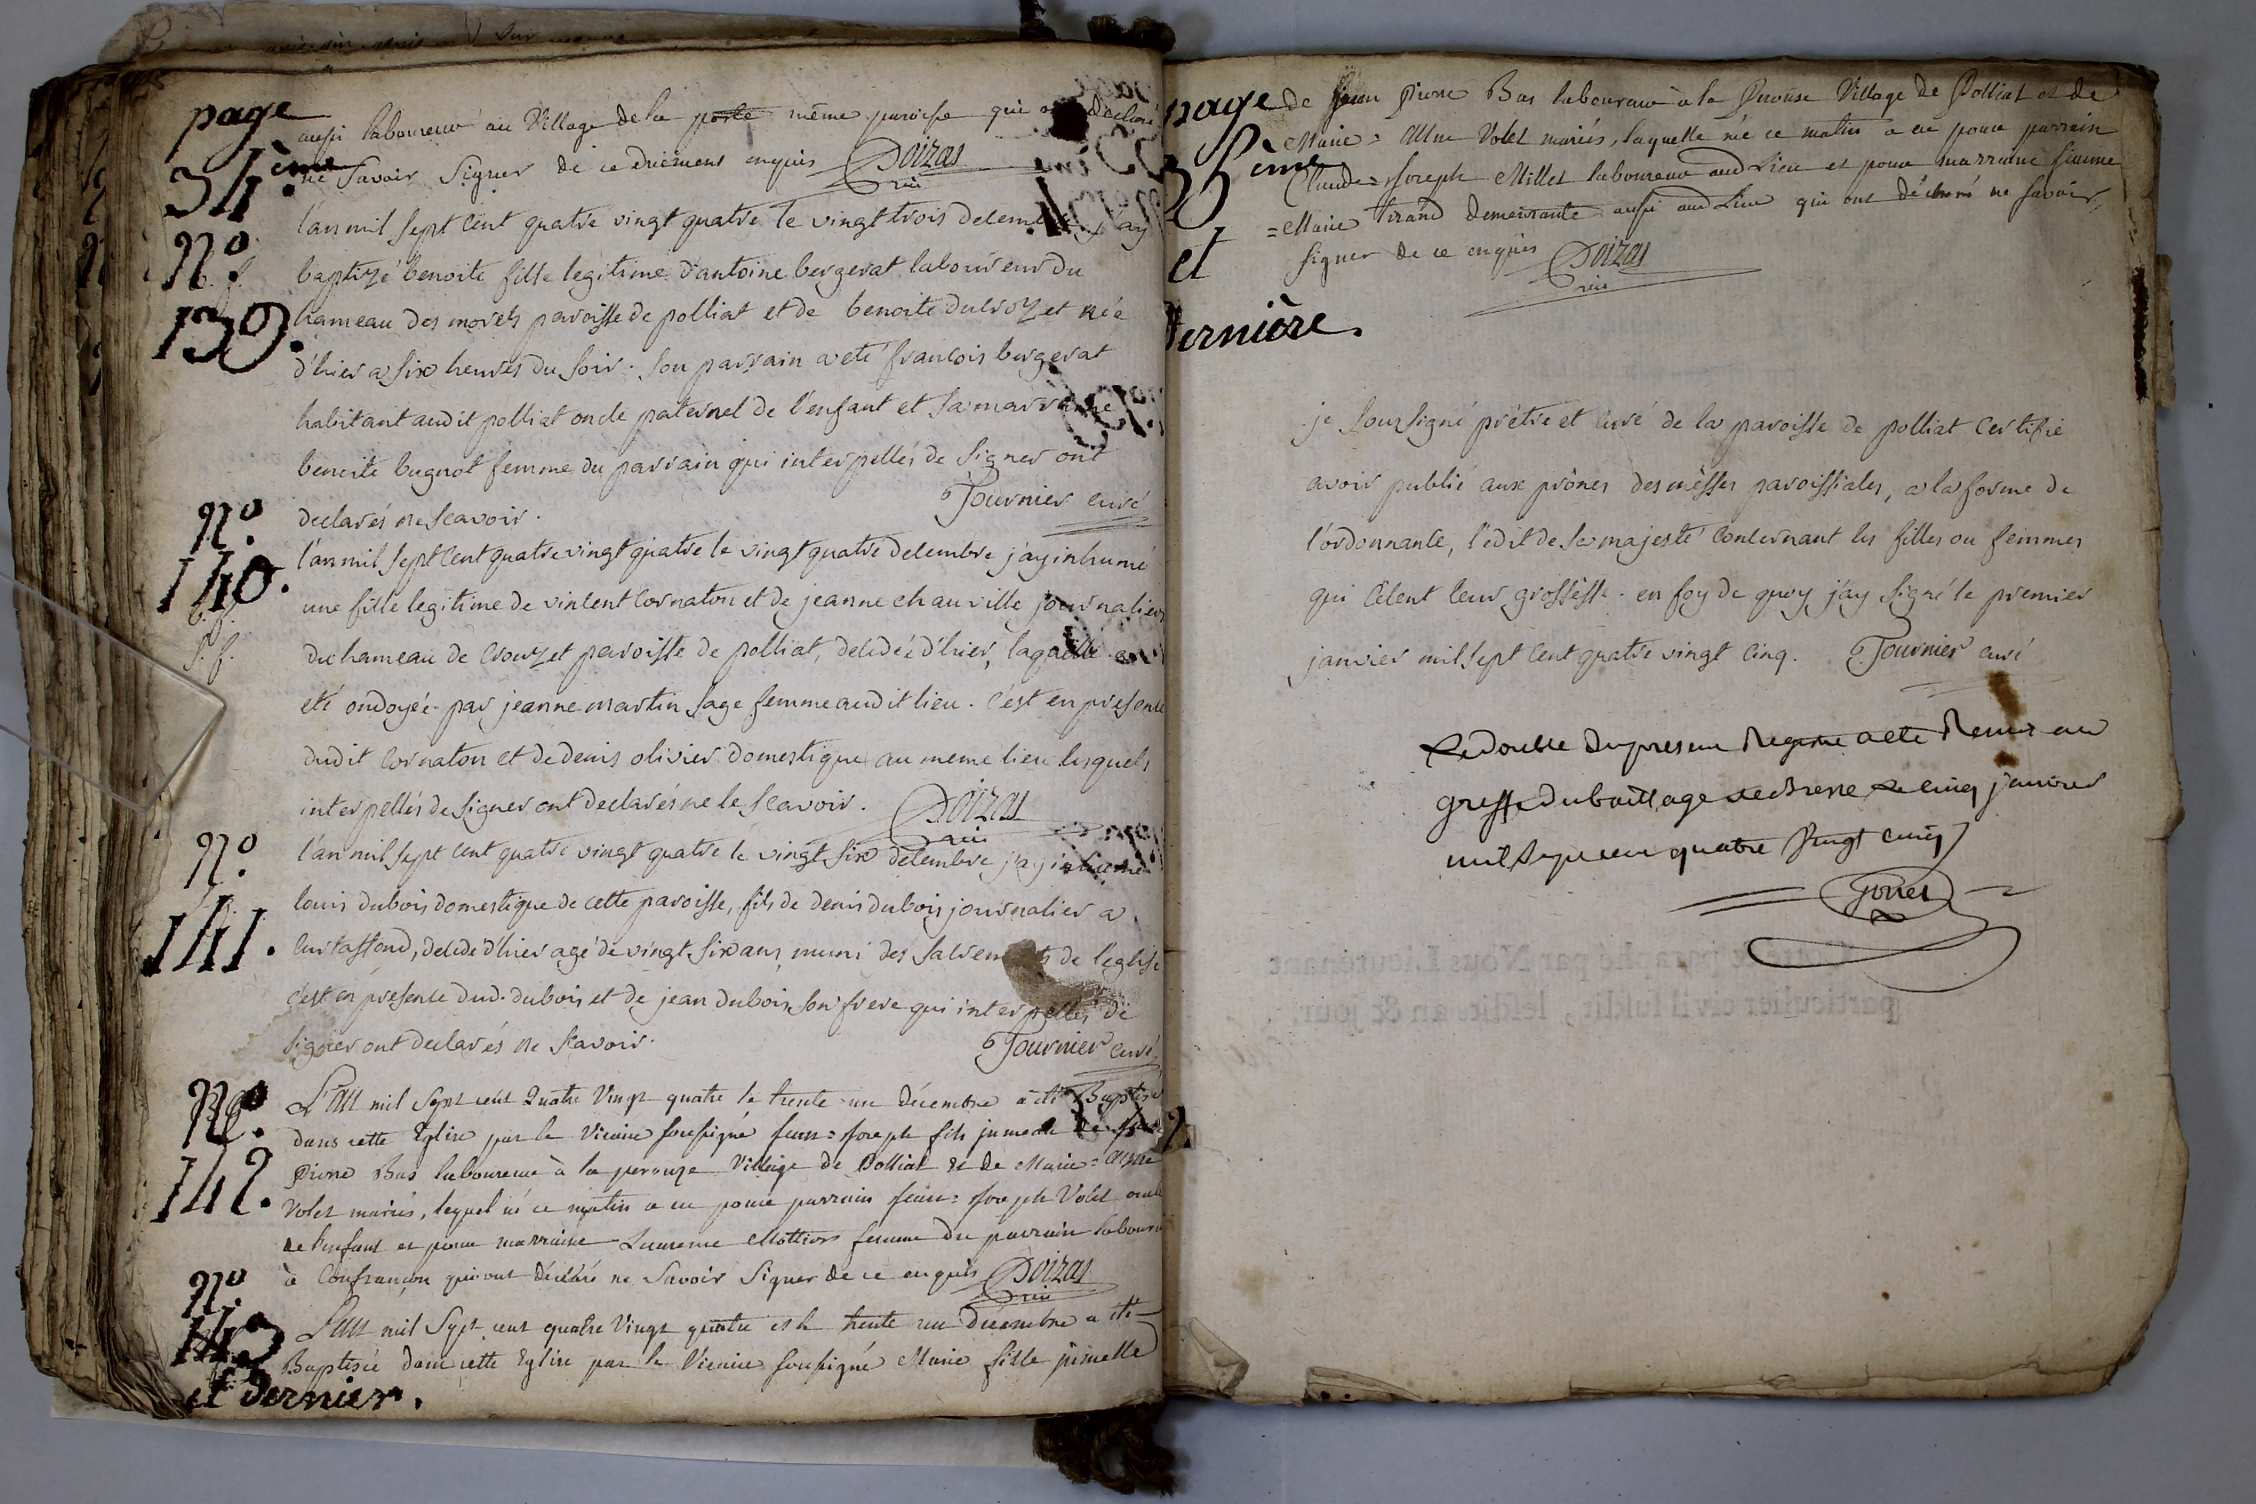 page
34.ème
aussi laboureur au Village de la poste même paroisse qui déclaré
ne Savoir Signer de ce duement enquis Poizat
vic
N.º
b. f.
139.
l'an mil sept cent quatre vingt quatre le vingt trois decembre j'ay
baptizé benoite fille legitime d'antoine bergerat laboureur du
hameau des morets paroisse de polliat et de benoite ducrozet née
d'hier a six heures du soir. son parrain a eté francois bergerat
habitant audit polliat oncle paternel de l'enfant et sa marraine
benoite bugnot femme du parrain qui interpellés de signer ont
declarés ne scavoir. Fournier curé
N.º
140.
b. f.
s. f.
l'an mil sept cent quatre vingt quatre le vingt quatre decembre j'ay inhumé
une fille legitime de vincent cornaton et de jeanne chauville journaliers
du hameau de crouzet paroisse de polliat, decedée d'hier, laquelle a
eté ondoyée par jeanne martin sage femme audit lieu. c'est en presence
dudit cornaton et de denis olivier domestique au meme lieu lesquels
interpellés de signer ont declarés ne le scavoir. Poizat
vic
N.º
141.
l'an mil sept cent quatre vingt quatre le vingt six decembre j'ay inhumé
louis dubois domestique de cette paroisse, fils de denis dubois journalier a
curtaffond, decedé d'hier agé de vingt six ans, muni des sacrements de l'eglise
c'est en presence dud. dubois et de jean dubois son frere qui interpellés de
signer ont declarés ne scavoir. Fournier curé
N.º
142.
L'an mil sept cent Quatre Vingt quatre le trente un décembre a été Baptisé
dans cette Eglise par le Vicaire soussigné Jean=Joseph fils jumeau de Jean
Pierre Bas laboureur à la perouze Village de Polliat et de Marie=Anne
Volet mariés, lequel né ce matin a eu pour parrain Jean=Joseph Volet oncle
de l'enfant et pour marraine Laurence Mottion femme du parrain laboureur
à Confrançon qui ont déclaré ne Savoir Signer de ce enquis Poizat
vic
N.º
143
et dernier.
L'an mil Sept cent quatre Vingt quatre et le trente un décembre a été
Baptisée dans cette Eglise par le Vicaire soussigné Marie fille jumelle
page
35ème
et
dernière.
de Jean Pierre Bas laboureur à la Perouse Village de Polliat et de
Marie=Anne Volet mariés, laquelle née ce matin a eu pour parrain
Claude=Joseph Millet laboureur aud Lieu et pour marraine femme
=Marie Tirand demeurante aussi aud Lieu qui ont déclaré ne savoir
signer de ce enquis Poizat
vic
je soussigné prêtre et curé de la paroisse de polliat certifie
avoir publié aux prônes des mêsses paroissiales, a la forme de
l'ordonnance, l'édit de sa majesté concernant les filles ou femmes
qui célent leur grossêsse. en foy de quoy j'ay signé le premier
janvier mil sept cent quatre vingt cinq. Fournier curé
Le double du present Registre a eté Remis au
greffe du bailliage de Bresse Le cinq janvier
mil sept cent quatre Vingt cinq